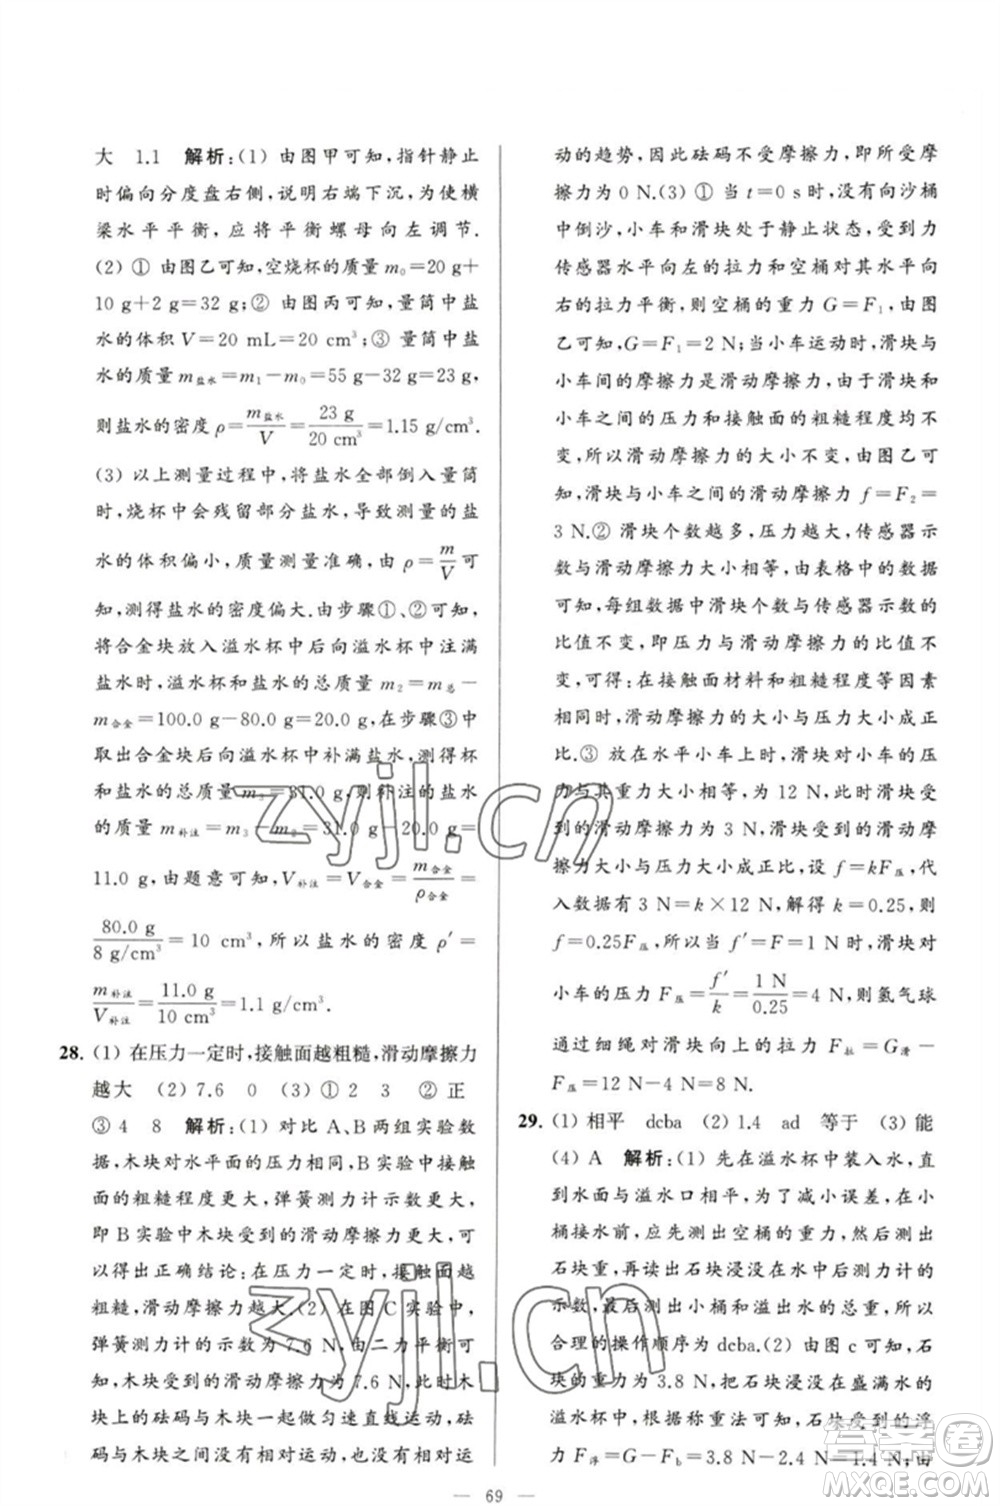 大　1.1　解析:(1) 由图甲可知,指针静止
时偏向分度盘右侧,说明右端下沉,为使横
梁水平平衡,应将平衡螺母向左调节.
(2) ① 由图乙可知,空烧杯的质量 m₀=20 g+
10 g+2 g=32 g;② 由图丙可知,量筒中盐
水的体积 V=20 mL=20 cm³;③ 量筒中盐
水的质量 m盐水=m₁-m₀=55 g-32 g=23 g,
则盐水的密度 ρ=m盐水/V=23 g/20 cm³=1.15 g/cm³.
(3) 以上测量过程中,将盐水全部倒入量筒
时,烧杯中会残留部分盐水,导致测量的盐
水的体积偏小,质量测量准确,由 ρ=m/V可
知,测得盐水的密度偏大.由步骤①、②可知,
将合金块放入溢水杯中后向溢水杯中注满
盐水时,溢水杯和盐水的总质量 m₂=m总-
m合金=100.0 g-80.0 g=20.0 g,在步骤③中
取出合金块后向溢水杯中补满盐水,测得杯
和盐水的总质量 m₃=31.0 g,则补注的盐水
的质量 m补注=m₃-m₂=31.0 g-20.0 g=
11.0 g,由题意可知,V补注=V合金=m合金/ρ合金=
80.0 g/8 g/cm³=10 cm³,所以盐水的密度 ρ′=
m补注/V补注=11.0 g/10 cm³=1.1 g/cm³.
28. (1) 在压力一定时,接触面越粗糙,滑动摩擦力
越大　(2) 7.6　0　(3) ① 2　3　② 正
③ 4　8　解析:(1) 对比 A、B 两组实验数
据,木块对水平面的压力相同,B 实验中接触
面的粗糙程度更大,弹簧测力计示数更大,
即 B 实验中木块受到的滑动摩擦力更大,可
以得出正确结论:在压力一定时,接触面越
粗糙,滑动摩擦力越大.(2) 在图 C 实验中,
弹簧测力计的示数为 7.6 N,由二力平衡可
知,木块受到的滑动摩擦力为 7.6 N,此时木
块上的砝码与木块一起做匀速直线运动,砝
码与木块之间没有相对运动,也没有相对运
动的趋势,因此砝码不受摩擦力,所受摩
擦力为 0 N.(3) ① 当 t=0 s 时,没有向沙桶
中倒沙,小车和滑块处于静止状态,受到力
传感器水平向左的拉力和空桶对其水平向
右的拉力平衡,则空桶的重力 G=F₁,由图
乙可知,G=F₁=2 N;当小车运动时,滑块与
小车间的摩擦力是滑动摩擦力,由于滑块和
小车之间的压力和接触面的粗糙程度均不
变,所以滑动摩擦力的大小不变,由图乙可
知,滑块与小车之间的滑动摩擦力 f=F₂=
3 N.② 滑块个数越多,压力越大,传感器示
数与滑动摩擦力大小相等,由表格中的数据
可知,每组数据中滑块个数与传感器示数的
比值不变,即压力与滑动摩擦力的比值不
变,则可得:在接触面材料和粗糙程度等因素
相同时,滑动摩擦力的大小与压力大小成正
比.③ 放在水平小车上时,滑块对小车的压
力与其重力大小相等,为 12 N,此时滑块受
到的滑动摩擦力为 3 N,滑块受到的滑动摩
擦力大小与压力大小成正比,设 f=kF压,代
入数据有 3 N=k×12 N,解得 k=0.25,则
f=0.25F压,所以当 f′=1 N 时,滑块对
小车的压力 F压=f′/k=1 N/0.25=4 N,则氢气球
通过细绳对滑块向上的拉力 F拉=G滑-
F压=12 N-4 N=8 N.
29. (1) 相平　dcba　(2) 1.4　ad　等于　(3) 能
(4) A　解析:(1) 先在溢水杯中装入水,直
到水面与溢水口相平,为了减小误差,在小
桶接水前,应先测出空桶的重力,然后测出
石块重,再读出石块浸没在水中时测力计的
示数,最后测出小桶和溢出水的总重,所以
合理的操作顺序为 dcba.(2) 由图 c 可知,石
块的重力为 3.8 N,把石块浸没在盛满水的
溢水杯中,根据称重法可知,石块受到的浮
力 F浮=G-Fb=3.8 N-2.4 N=1.4 N.由
— 69 —
zyjl.cn
zyjl.cn
答案圈
MXQE.COM